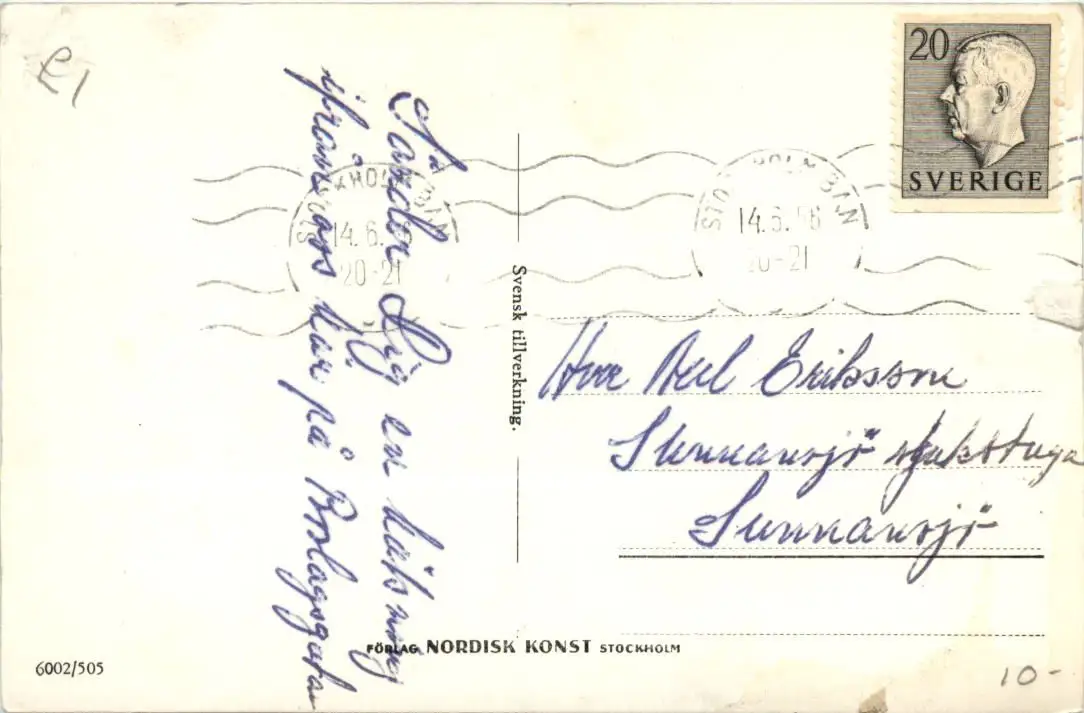 21
20
SVERIGE
STOCKHOLM BAN
14.6.56
20-21
STOCKHOLM BAN
14.6.56
20-21
Sänder Dig en hälsning
ifrån oss här på Bolagsgatan
Svensk tillverkning.
Herr Axel Eriksson
Sunnansjö sjukstuga
Sunnansjö
FÖRLAG NORDISK KONST STOCKHOLM
6002/505
10-